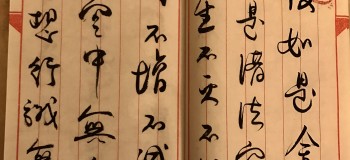 復如是舍
是諸法空
生不灭不
不增不減
空中無
想行識無